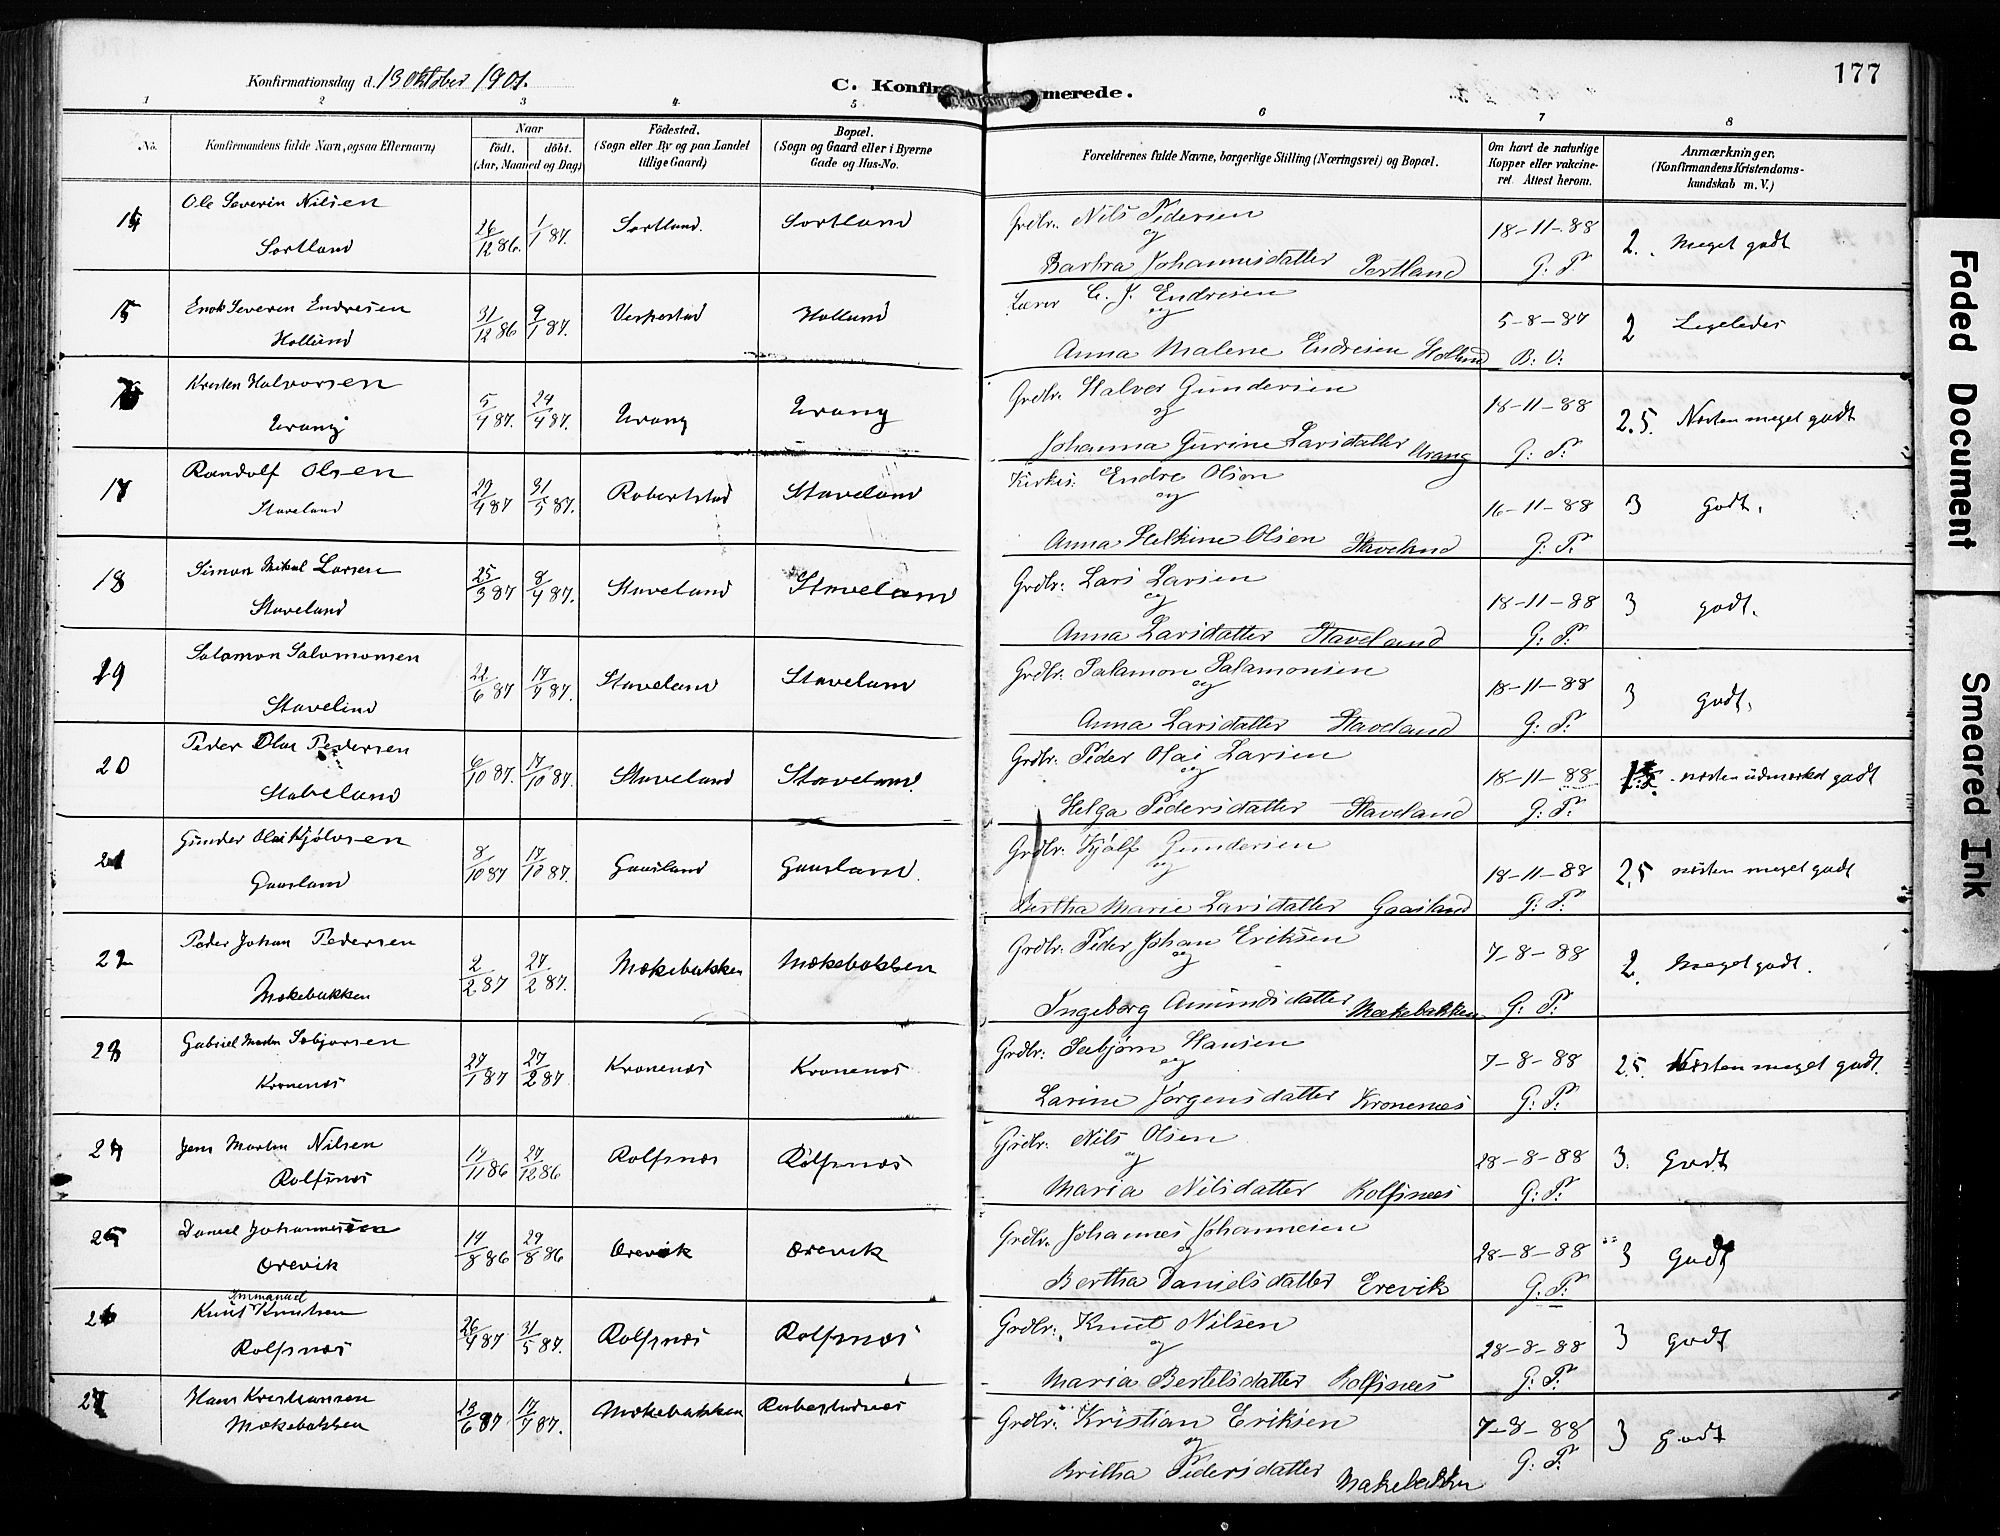 177
Konfirmationsdag d. 13 Oktober 1901.
C. Konfir merede.
1 2 3 4 5 6 7 8
No.
Konfirmandens fulde Navn, ogsaa Efternavn)
Naar
födt. döbt.
(Aar, Maaned og Dag)
Födested.
(Sogn eller By og paa Landet
tillige Gaard)
Bopæl.
(Sogn og Gaard eller i Byerne
Gade og Hus-No.
Forældrenes fulde Navne, borgerlige Stilling (Næringsvei) og Bopæl.
Om havt de naturlige
Kopper eller vakcine-
ret. Attest herom.
Anmærkninger,
(Konfirmandens Kristendoms-
kundskab m. V.)
Ole Severin Nilsen Grdbr. Nils Pedersen
14 26/12 86. 1/1 87. Sortland. Sortland og 18-11-88 2. Meget godt
Sortland Barbra Johannesdatter Sortland G: P.
Enok Severin Endresen Lærer E. J. Endresen
15 31/12 86 9/1 87. Verkestad Hollund og 5-8-87 2 Ligeledes
Hollund Anna Malene Endresen Hollund B: V:
Kristen Halvorsen Grdbr: Halver Gundersen
16 5/4 87. 24/4 87. Urang Urang og 18-11-88 2.5. Næsten meget godt
Urang Johanna Gurine Larsdatter Urang G: P.
Randolf Olsen Kirkes. Endre Olson
17 29/4 87 31/5 87. Robertstad Staveland og 16-11-88 3 godt.
Staveland Anna Helkine Olsen Staveland G: P.
Simon Mikal Larsen Grdbr: Lars Larsen
18 25/3 87 8/4 87. Staveland Staveland og 18-11-88 3 godt.
Staveland Anna Larsdatter Staveland G: P.
Salamon Salomonsen Grdbr: Salamon Salamonsen
19 22/6 87 17/7 87. Staveland Staveland og 18-11-88 3 godt.
Staveland Anna Larsdatter Staveland G: P.
Peder Olai Pedersen Grdbr: Peder Olai Larsen
20 6/10 87. 17/10 87. Staveland Staveland. og 18-11-88 1.5. næsten udmærket godt
Stabeland Helga Pedersdatter Staveland G: P.
Gunder Olai Kjölvsen Grdbr: Kjölf Gundersen
21 8/10 87 17/10 87. Gaasland Gaasland. og 18-11-88 2,5 næsten meget godt
Gaasland Bertha Marie Larsdatter Gaasland G: P.
Peder Johan Pedersen Grdbr: Peder Johan Eriksen
22 2/2 87 27/2 87. Mækebakken Mækebakken og 7-8-88 2. Meget godt.
Mækebakken Ingeborg Amundsdatter Mækebakken G: P.
Gabriel Martin Sebjörsen Grdbr: Sebjörn Hansen
23 27/1 87 27/2 87. Kronenæs Kronenæs og 7-8-88 2.5. Næsten meget godt.
Kronenæs Larine Jörgensdatter Kronenæs G: P.
Jens Martin Nilsen Grdbr: Nils Olsen
24 17/11 86 27/12 86 Rolfsnæs Rolfsnæs og 28-8-88 3. Godt
Rolfsnæs Maria Nilsdatter Rolfsnæs G: P.
Daniel Johannessen Grdbr. Johannes Johannesen
25 14/8 86 29/8 86 Ørevik Ørevik og 28-8-88 3 Godt
Ørevik Bertha Danielsdatter Erevik G: P.
Immanuel
Knut Knutsen Grdbr: Knut Nilsen
26 26/4 87 31/5 87. Rolfsnæs Rolfsnæs og 28-8-88 3 godt
Rolfsnæs Maria Bertelsdatter Rolfsnæs G: P.
Hans Kristiansen Grdbr: Kristian Eriksen
27 23/6 87 17/7 87. Mækebakken 7-8-88 3 godt
Mækebakken og
Britha Pedersdatter Makebakken G: P.
Faded Document
Smeared Ink